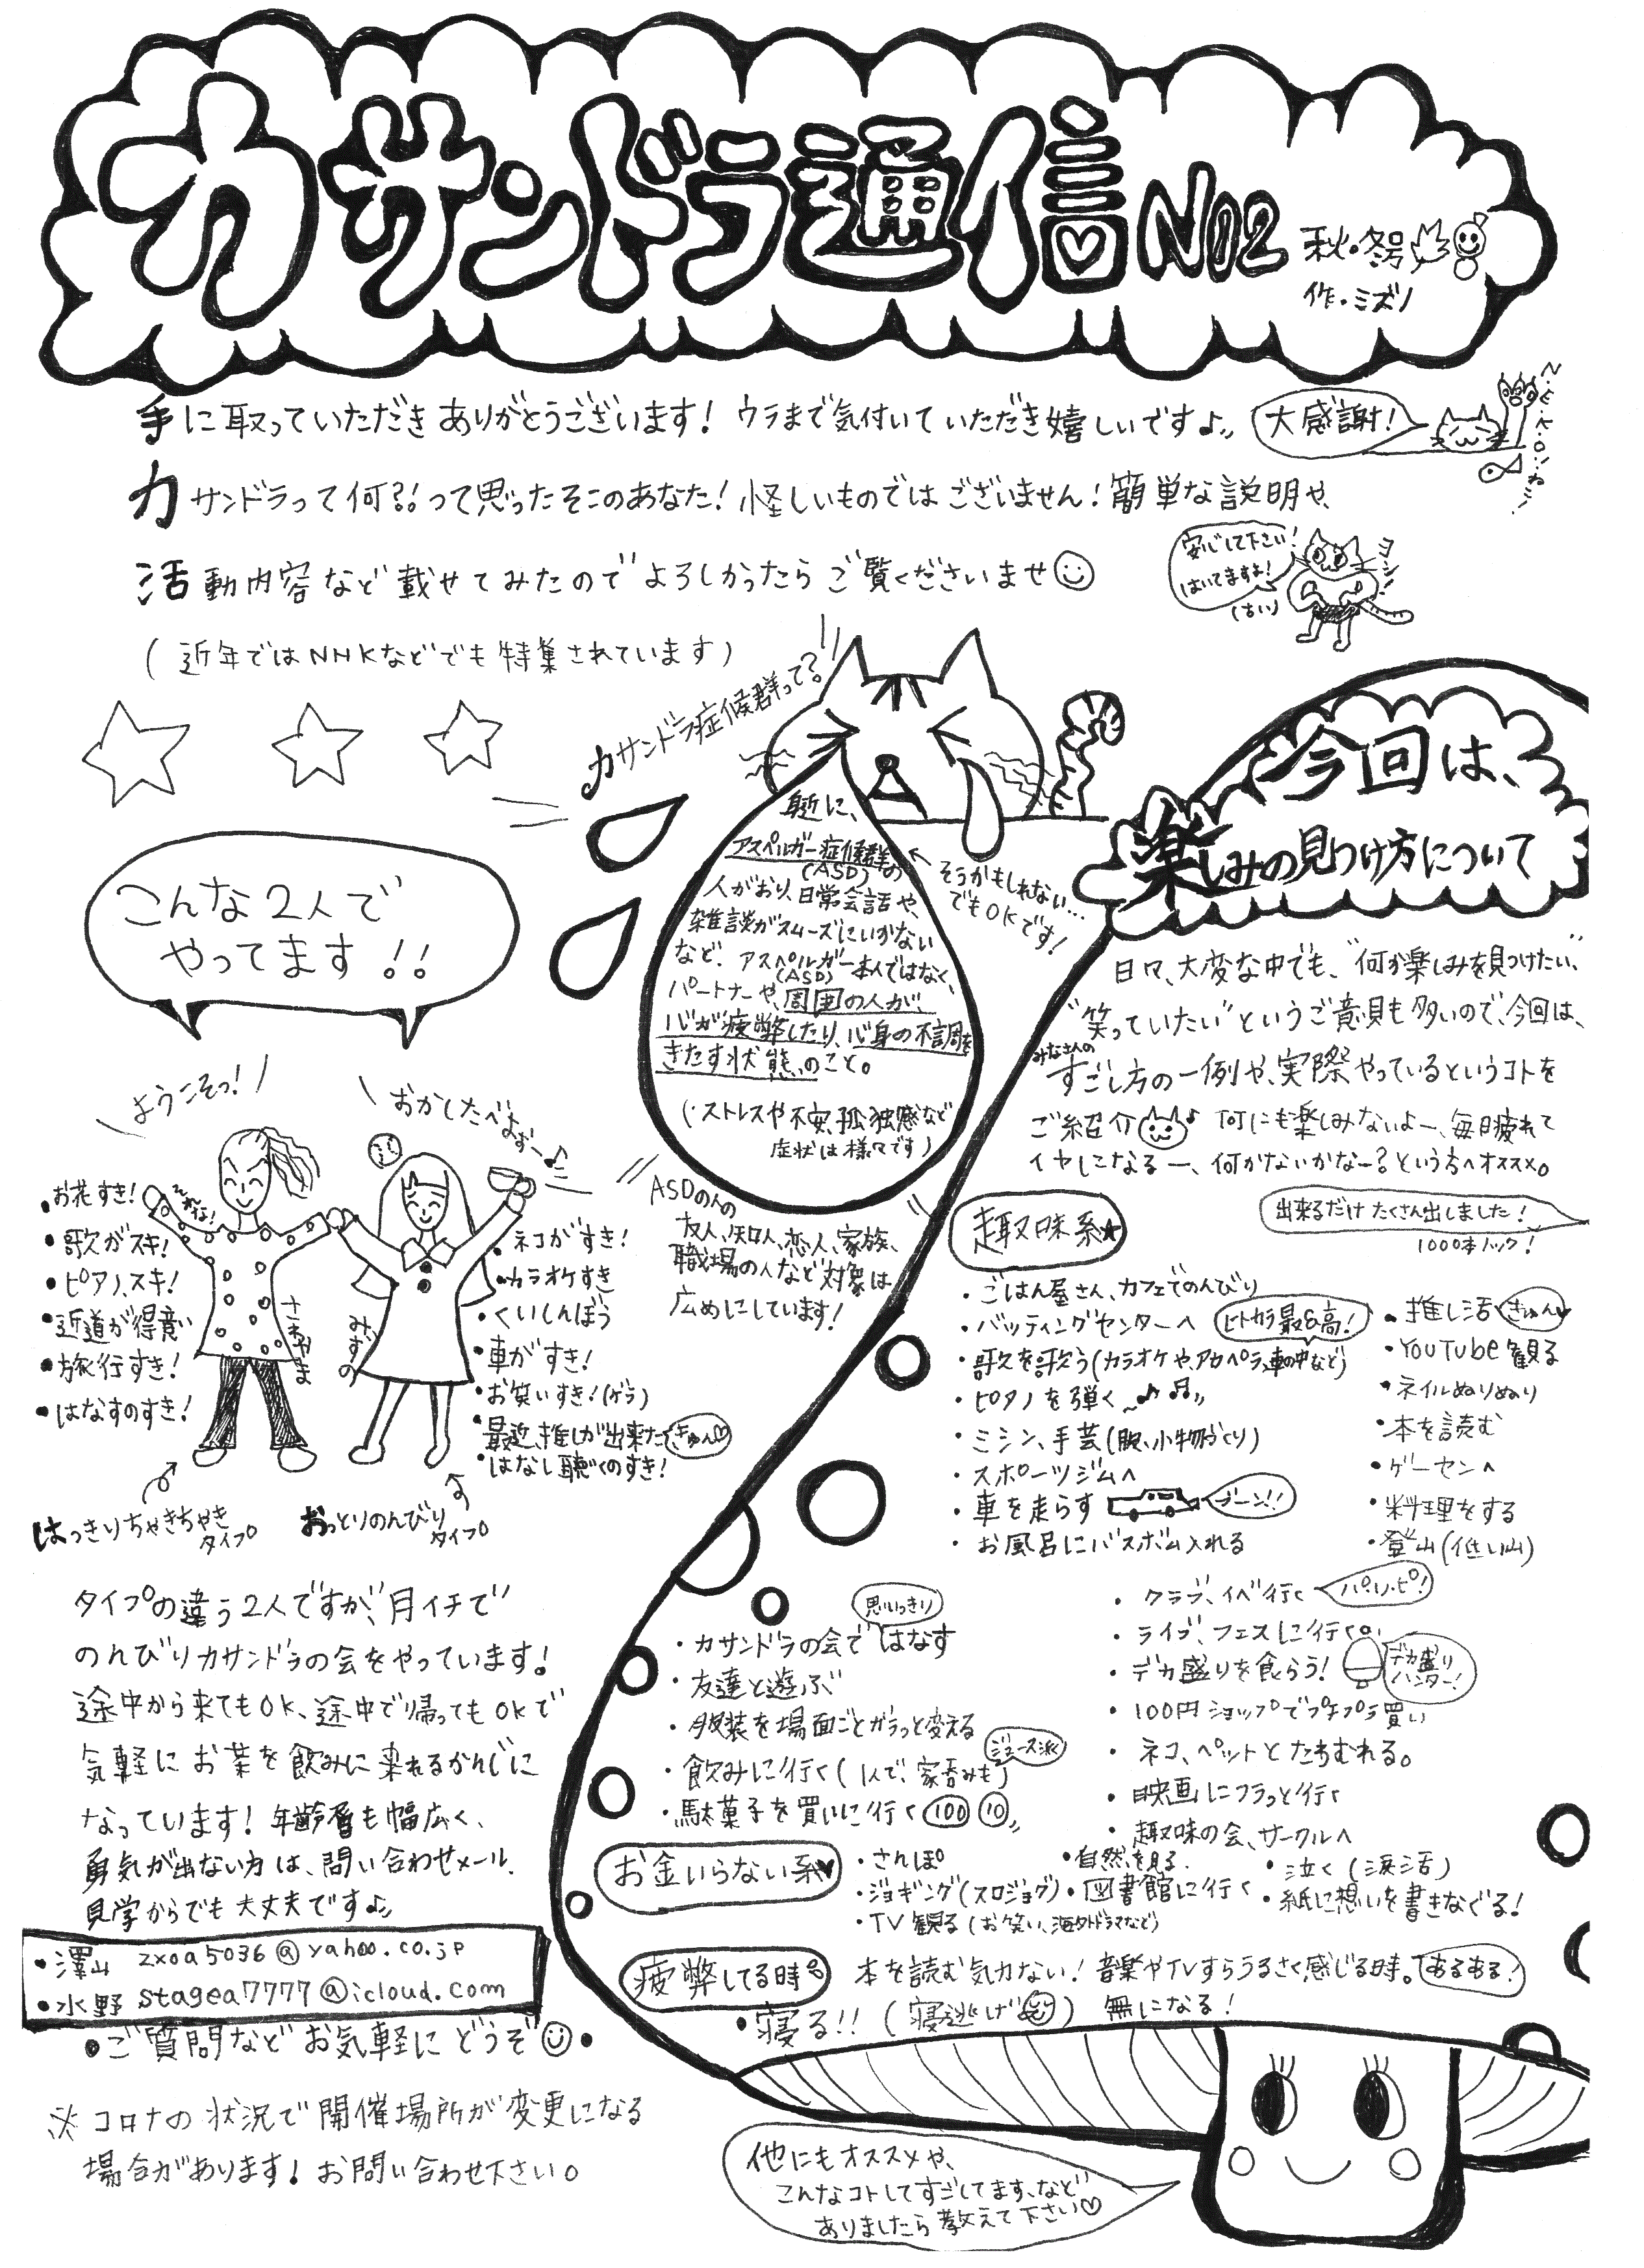 カサンドラ通信 NO2
秋・冬号
作・ミズノ
手に取っていただきありがとうございます！ ウラまで気付いていただき嬉しいです♪
大感謝！
カサンドラって何？？って思ったそこのあなた！怪しいものではございません！簡単な説明や、
安心して下さい！
はいてますよ！
活動内容など載せてみたのでよろしかったらご覧くださいませ☺
（近年ではNHKなどでも特集されています）
カサンドラ症候群って？
身近に、
アスペルガー症候群の
(ASD)
人がおり、日常会話や、
雑談がスムーズにいかない
など、アスペルガー本人ではなく、
(ASD)
パートナーや、周囲の人が、
心が疲弊したり、心身の不調を
きたす状態のこと。
（・ストレスや不安、孤独感など
症状は様々です）
そうかもしれない…
でもOKです！
ASDの人の
友人、知人、恋人、家族、
職場の人など対象は
広めにしています！
こんな2人で
やってます！！
ようこそっ！
おかしたべよぉー♪
・お花すき！
・歌がスキ！
・ピアノスキ！
・近道が得意
・旅行すき！
・はなすのすき！
さわやま
みずの
・ネコがすき！
・カラオケすき
・くいしんぼう
・車がすき！
・お笑いすき！（ゲラ）
・最近、推しが出来た きゅん♡
・はなし聴くのすき！
はっきりちゃきちゃき
タイプ
おっとりのんびり
タイプ
タイプの違う2人ですが、月イチで
のんびりカサンドラの会をやっています！
途中から来てもOK、途中で帰ってもOKで
気軽にお茶を飲みに来れるかんじに
なっています！年齢層も幅広く、
勇気が出ない方は、問い合わせメール、
見学からでも大丈夫です♪
・澤山 zxoa5036@yahoo.co.jp
・水野 stagea7777@icloud.com
・ご質問などお気軽にどうぞ☺・
※コロナの状況で開催場所が変更になる
場合があります！お問い合わせ下さい。
今回は、
楽しみの見つけ方について
日々、大変な中でも、“何か楽しみを見つけたい”、
“笑っていたい”というご意見も多いので、今回は、
みなさんの
すごし方の一例や、実際やっているというコトを
ご紹介♪ 何にも楽しみないよー、毎日疲れて
イヤになるー、何かないかなー？という方へオススメ。
出来るだけたくさん出しました！
1000本ノック！
趣味系★
・ごはん屋さん、カフェでのんびり
・バッティングセンターへ
ヒトカラ最&高！
・歌を歌う（カラオケや、アカペラ、車の中など）
・ピアノを弾く～♪♫
・ミシン、手芸（服、小物づくり）
・スポーツジムへ
・車を走らす ブーン！！
・お風呂にバスボム入れる
・推し活 きゅん♥
・YouTube観る
・ネイルぬりぬり
・本を読む
・ゲーセンへ
・料理をする
・登山（低い山）
思いっきり
・カサンドラの会ではなす
・友達と遊ぶ
・服装を場面ごとガラっと変える
・飲みに行く（1人で、家呑みも） ジュース派
・駄菓子を買いに行く 100 10
・クラブ、イベ行く パ・リ・ピ！
・ライブ、フェスに行く
・デカ盛りを食らう！ デカ盛りハンター！
・100円ショップでプチプラ買い
・ネコ、ペットとたわむれる。
・映画にフラっと行く
・趣味の会、サークルへ
お金いらない系♥
・さんぽ
・ジョギング（スロジョグ）
・TV観る（お笑い、海外ドラマなど）
・自然を見る
・図書館に行く
・泣く（涙活）
・紙に想いを書きなぐる！
疲弊してる時
本を読む気力ない！音楽やTVすらうるさく感じる時。あるある！
・寝る！！（寝逃げ） 無になる！
他にもオススメや、
こんなコトしてすごしてます、など
ありましたら教えて下さい♡